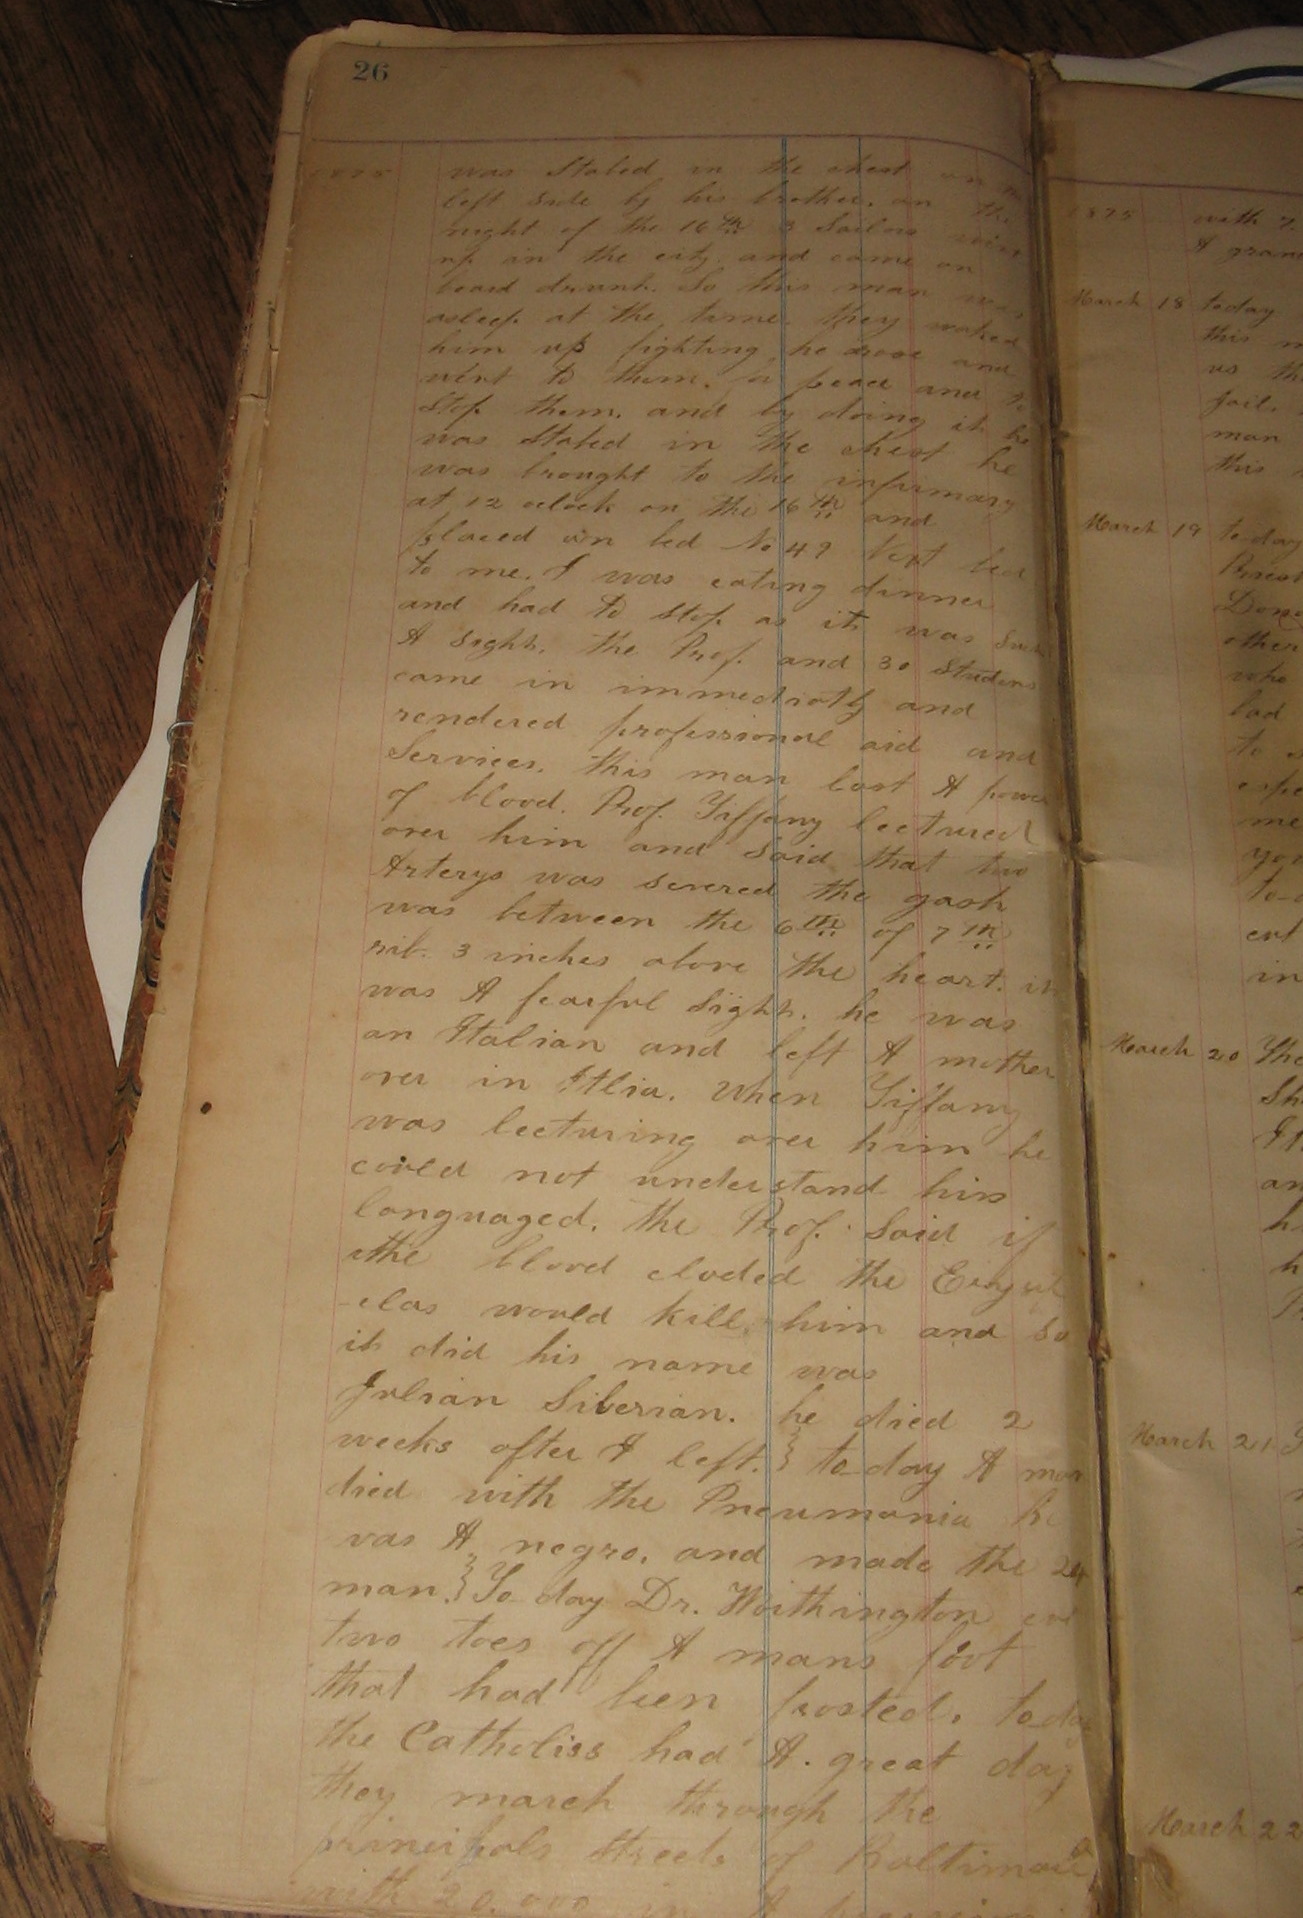 26
1875 was Stabed in the chest on
left side by his brother. on the
night of the 16th 3 Sailors
up in the city. and came on
board drunk. So this man was
asleep. at the time. they waked
him up fighting, he arose and
went to them. for peace and to
stop them. and by doing it he
was Stabed in the chest he
was brought to the infirmary
at 12 oclock on the 16th and
placed in bed No 49 Next bed
to me. I was eating dinner
and had to stop. as it was Such
A sight. the Prof. and 30 Students
came in immediatly and
rendered professional aid and
Services. this man lost A power
of blood. Prof. Tiffany lectured
over him and Said that two
Arterys was severed the gash
was between the 6th of 7th
rib. 3 inches above the heart. it
was A fearful Sight. he was
an Italian and left A mother
over in Itlia. When Tiffany
was lecturing over him he
could not understand his
languaged. the Prof. Said if
the blood cloded the
would kill him and So
it did his name was
Julian Siberian. he died 2
weeks after I left. to day A man
died with the Pneumonia he
was A negro. and made the 24
man. To day Dr. Worthington cut
two toes off A mans foot
that had been frosted. today
the Catholiss had A. great day
they march through the
principals Streets of Baltimore
with 20,000 in A
1875 with 7.
A gran
March 18 today
this m
us th
jail.
man
this
March 19 to day
Priest
Dono
other
who
bad
to
espe
me
you
to-d
cut
in
March 20 The
Sh
It
an
h
h
March 21.
March 22